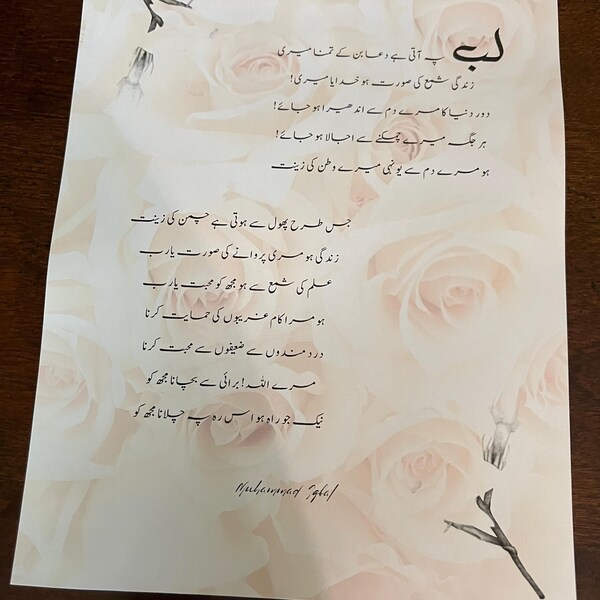 لب پہ آتی ہے دعا بن کے تمنا میری
زندگی شمع کی صورت ہو خدایا میری!
دور دنیا کا مرے دم سے اندھیرا ہو جائے!
ہر جگہ میرے چمکنے سے اجالا ہو جائے!
ہو مرے دم سے یونہی میرے وطن کی زینت
جس طرح پھول سے ہوتی ہے چمن کی زینت
زندگی ہو مری پروانے کی صورت یارب
علم کی شمع سے ہو مجھ کو محبت یارب
ہو مرا کام غریبوں کی حمایت کرنا
دردمندوں سے ضعیفوں سے محبت کرنا
مرے اللہ! برائی سے بچانا مجھ کو
نیک جو راہ ہو اس رہ پہ چلانا مجھ کو
Muhammad Iqbal